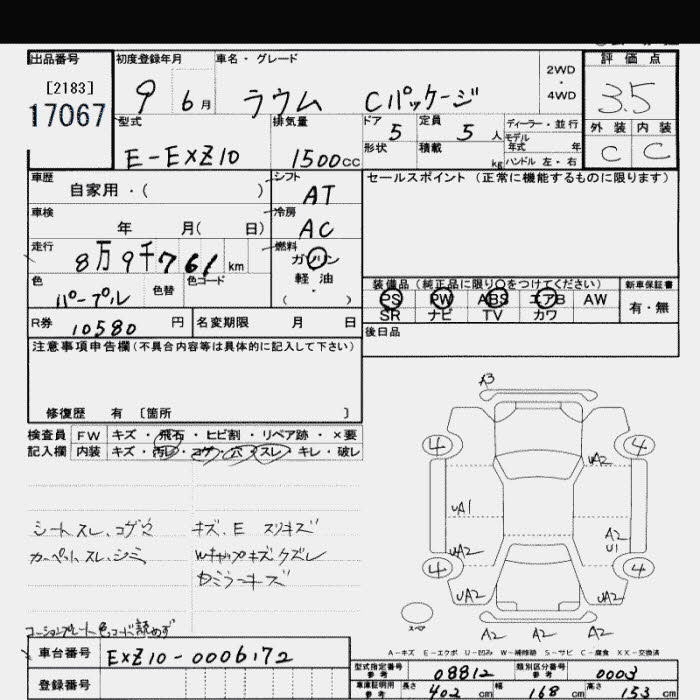 出品番号 初度登録年月 車名・グレード 評価点
[2183] 2WD・4WD
17067 9 6月 ラウム Cパッケージ 3.5
型式 排気量 ドア 定員 ディーラー・並行 外装 内装
E-EXZ10 1500cc 5 5人 モデル年式 年 C C
形状 積載 kg ハンドル 左・右
車歴 シフト セールスポイント (正常に機能するものに限ります)
自家用・( ) AT
車検 冷房
年 月( 日) AC
走行 燃料
8万9千761km ガソリン
色 色替 色コード 軽油
パープル ( ・ )
装備品 (純正品に限り○をつけてください) 新車保証書
PS PW ABS エアB AW 有・無
SR ナビ TV カワ
R券 10580円 名変期限 月 日 後日品
注意事項申告欄(不具合内容等は具体的に記入して下さい)
修復歴 有 〔箇所 〕
検査員 FW キズ・飛石・ヒビ割・リペア跡・×要
記入欄 内装 キズ・汚レ・コゲ・穴・スレ・キレ・破レ
シートスレ、コゲ穴 キズ、E スリキズ
カーペットスレ、シミ Wキャップキズクズレ
Dミラーキズ
コーションプレート色コード読めず
A3
4 4
UA2
UA1
A2
UA2 U1
4 4
UA2 UA2
スペア
A2 A2 A2
A-キズ E-エクボ U-凹み W-補修跡 S-サビ C-腐食 XX-交換済
車台番号 EXZ10-0006172
登録番号
型式指定番号 参考 08812 類別区分番号 参考 0003
車庫証明用 参考 長さ 402cm 幅 168cm 高さ 153cm